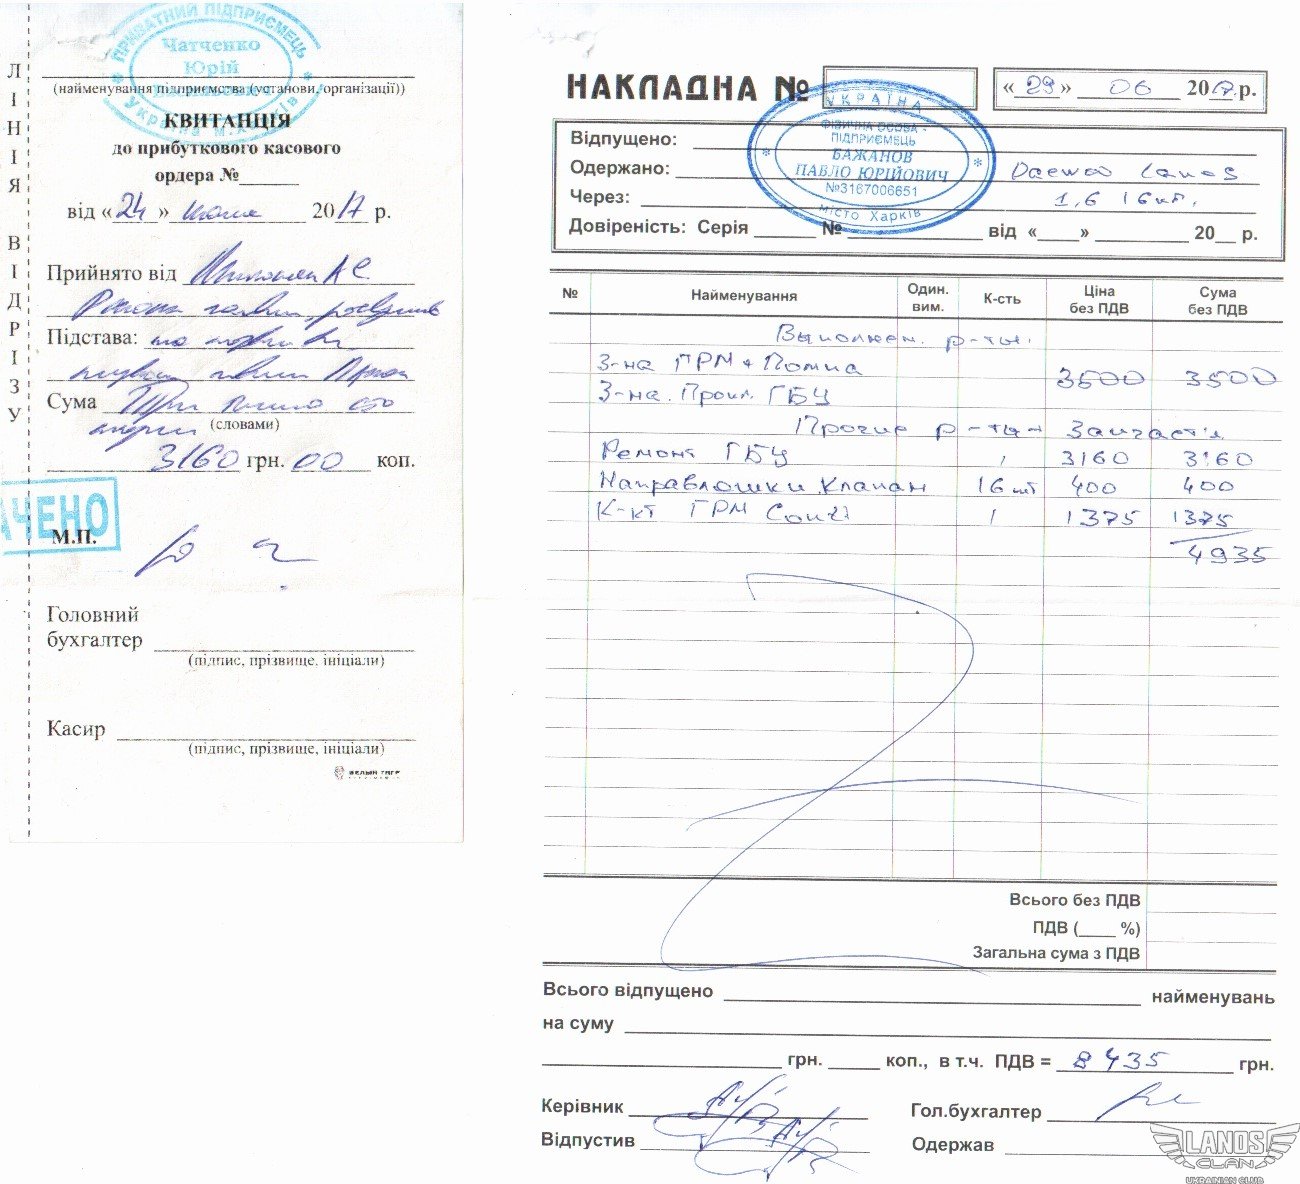 ПРИВАТНИЙ ПІДПРИЄМЕЦЬ
Чатченко
Юрій
Україна м. Харків
(найменування підприємства (установи, організації))
КВИТАНЦІЯ
до прибуткового касового
ордера №
від «24» июня 2017 р.
Прийнято від
Підстава:
Сума Три тисячі сто
(словами)
3160 грн. 00 коп.
АЧЕНО
М.П.
Головний
бухгалтер
(підпис, прізвище, ініціали)
Касир
(підпис, прізвище, ініціали)
БЕЛЫЙ ТИГР
ЛІНІЯ ВІДРІЗУ
НАКЛАДНА №
«29» 06 2017 р.
УКРАЇНА
ФІЗИЧНА ОСОБА -
ПІДПРИЄМЕЦЬ
БАЖАНОВ
ПАВЛО ЮРІЙОВИЧ
№3167006651
місто Харків
Відпущено:
Одержано: Daewoo Lanos
Через: 1,6 16кл.
Довіреність: Серія № від «» 20 р.
№ Найменування Один. вим. К-сть Ціна без ПДВ Сума без ПДВ
Выполнен. р-ты.
З-на ГРМ + Помпа 3500 3500
З-на. Прокл. ГБЦ
Прочие р-ты + Запчасті
Ремонт ГБЦ 1 3160 3160
Направляшки Клапан 16 шт 400 400
К-кт ГРМ 1 1375 1375
4935
Всього без ПДВ
ПДВ ( %)
Загальна сума з ПДВ
Всього відпущено найменувань
на суму
грн. коп., в т.ч. ПДВ = 8435 грн.
Керівник Гол.бухгалтер
Відпустив Одержав
LANOS
CLAN
UKRAINIAN CLUB